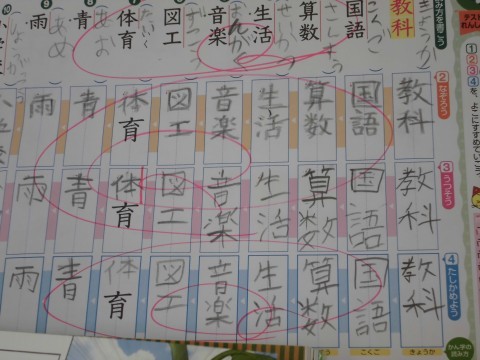 み方を書こう
教科
きょうか
国語
こくご
算数
さんすう
生活
音楽
おんがく
図工
ずこう
体育
青
あお
雨
あめ
2 なぞろう
教科
国語
算数
生活
音楽
図工
体育
青
雨
3 うつそう
教科
国語
算数
生活
音楽
図工
体育
青
雨
4 たしかめよう
教科
国語
算数
生活
音楽
図工
体育
青
雨
①②③④を、よこにすすめていこう
かん字の読み方
きょうか
こくご